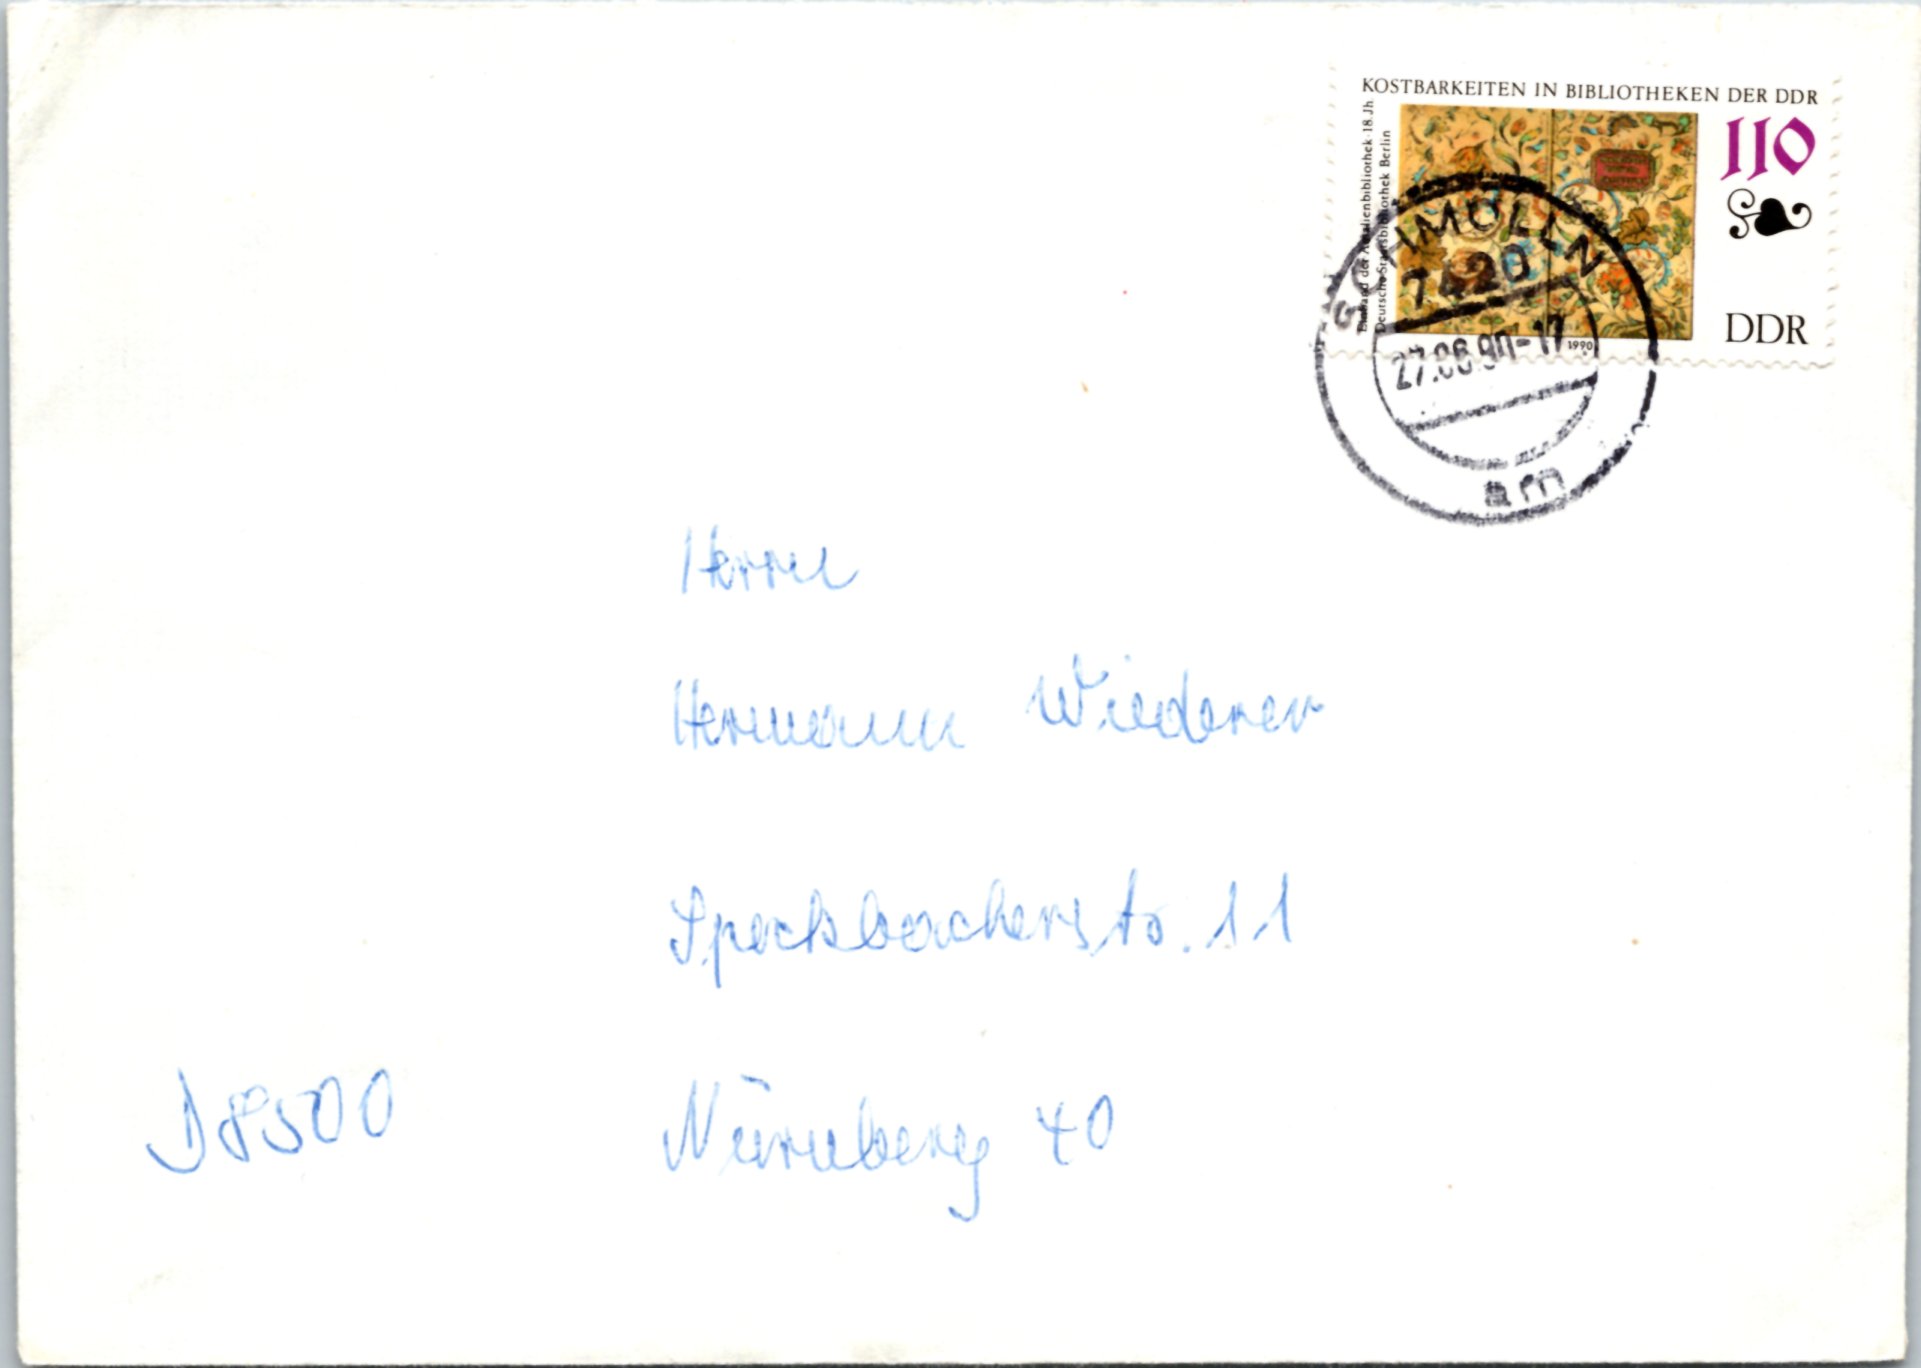 KOSTBARKEITEN IN BIBLIOTHEKEN DER DDR
Einband der Amalienbibliothek · 18. Jh.
Deutsche Staatsbibliothek Berlin
110
DDR
1990
SCHMÖLLN
7420
27.06.90-17
am
Herrn
Hermann Wiederer
Speckbacherstr. 11
D 8500 Nürnberg 40